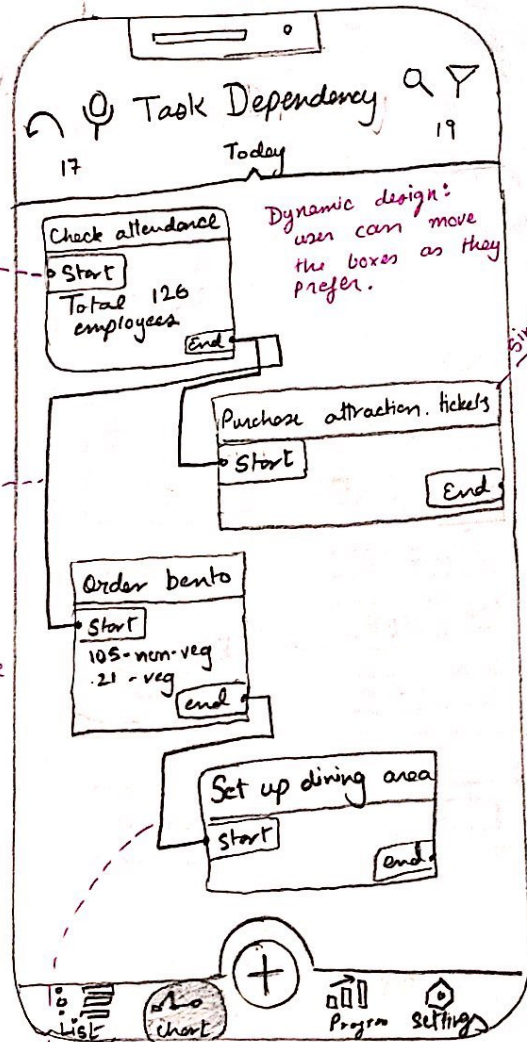 Task Dependency
17
Today
19
Check attendance
Start
Total 126
employees
End
Dynamic design:
user can move
the boxes as they
prefer.
Purchase attraction. tickets
Start
End
Order bento
Start
105-non-veg
21 - veg
end
Set up dining area
Start
end
+
List
chart
Progress
Setting